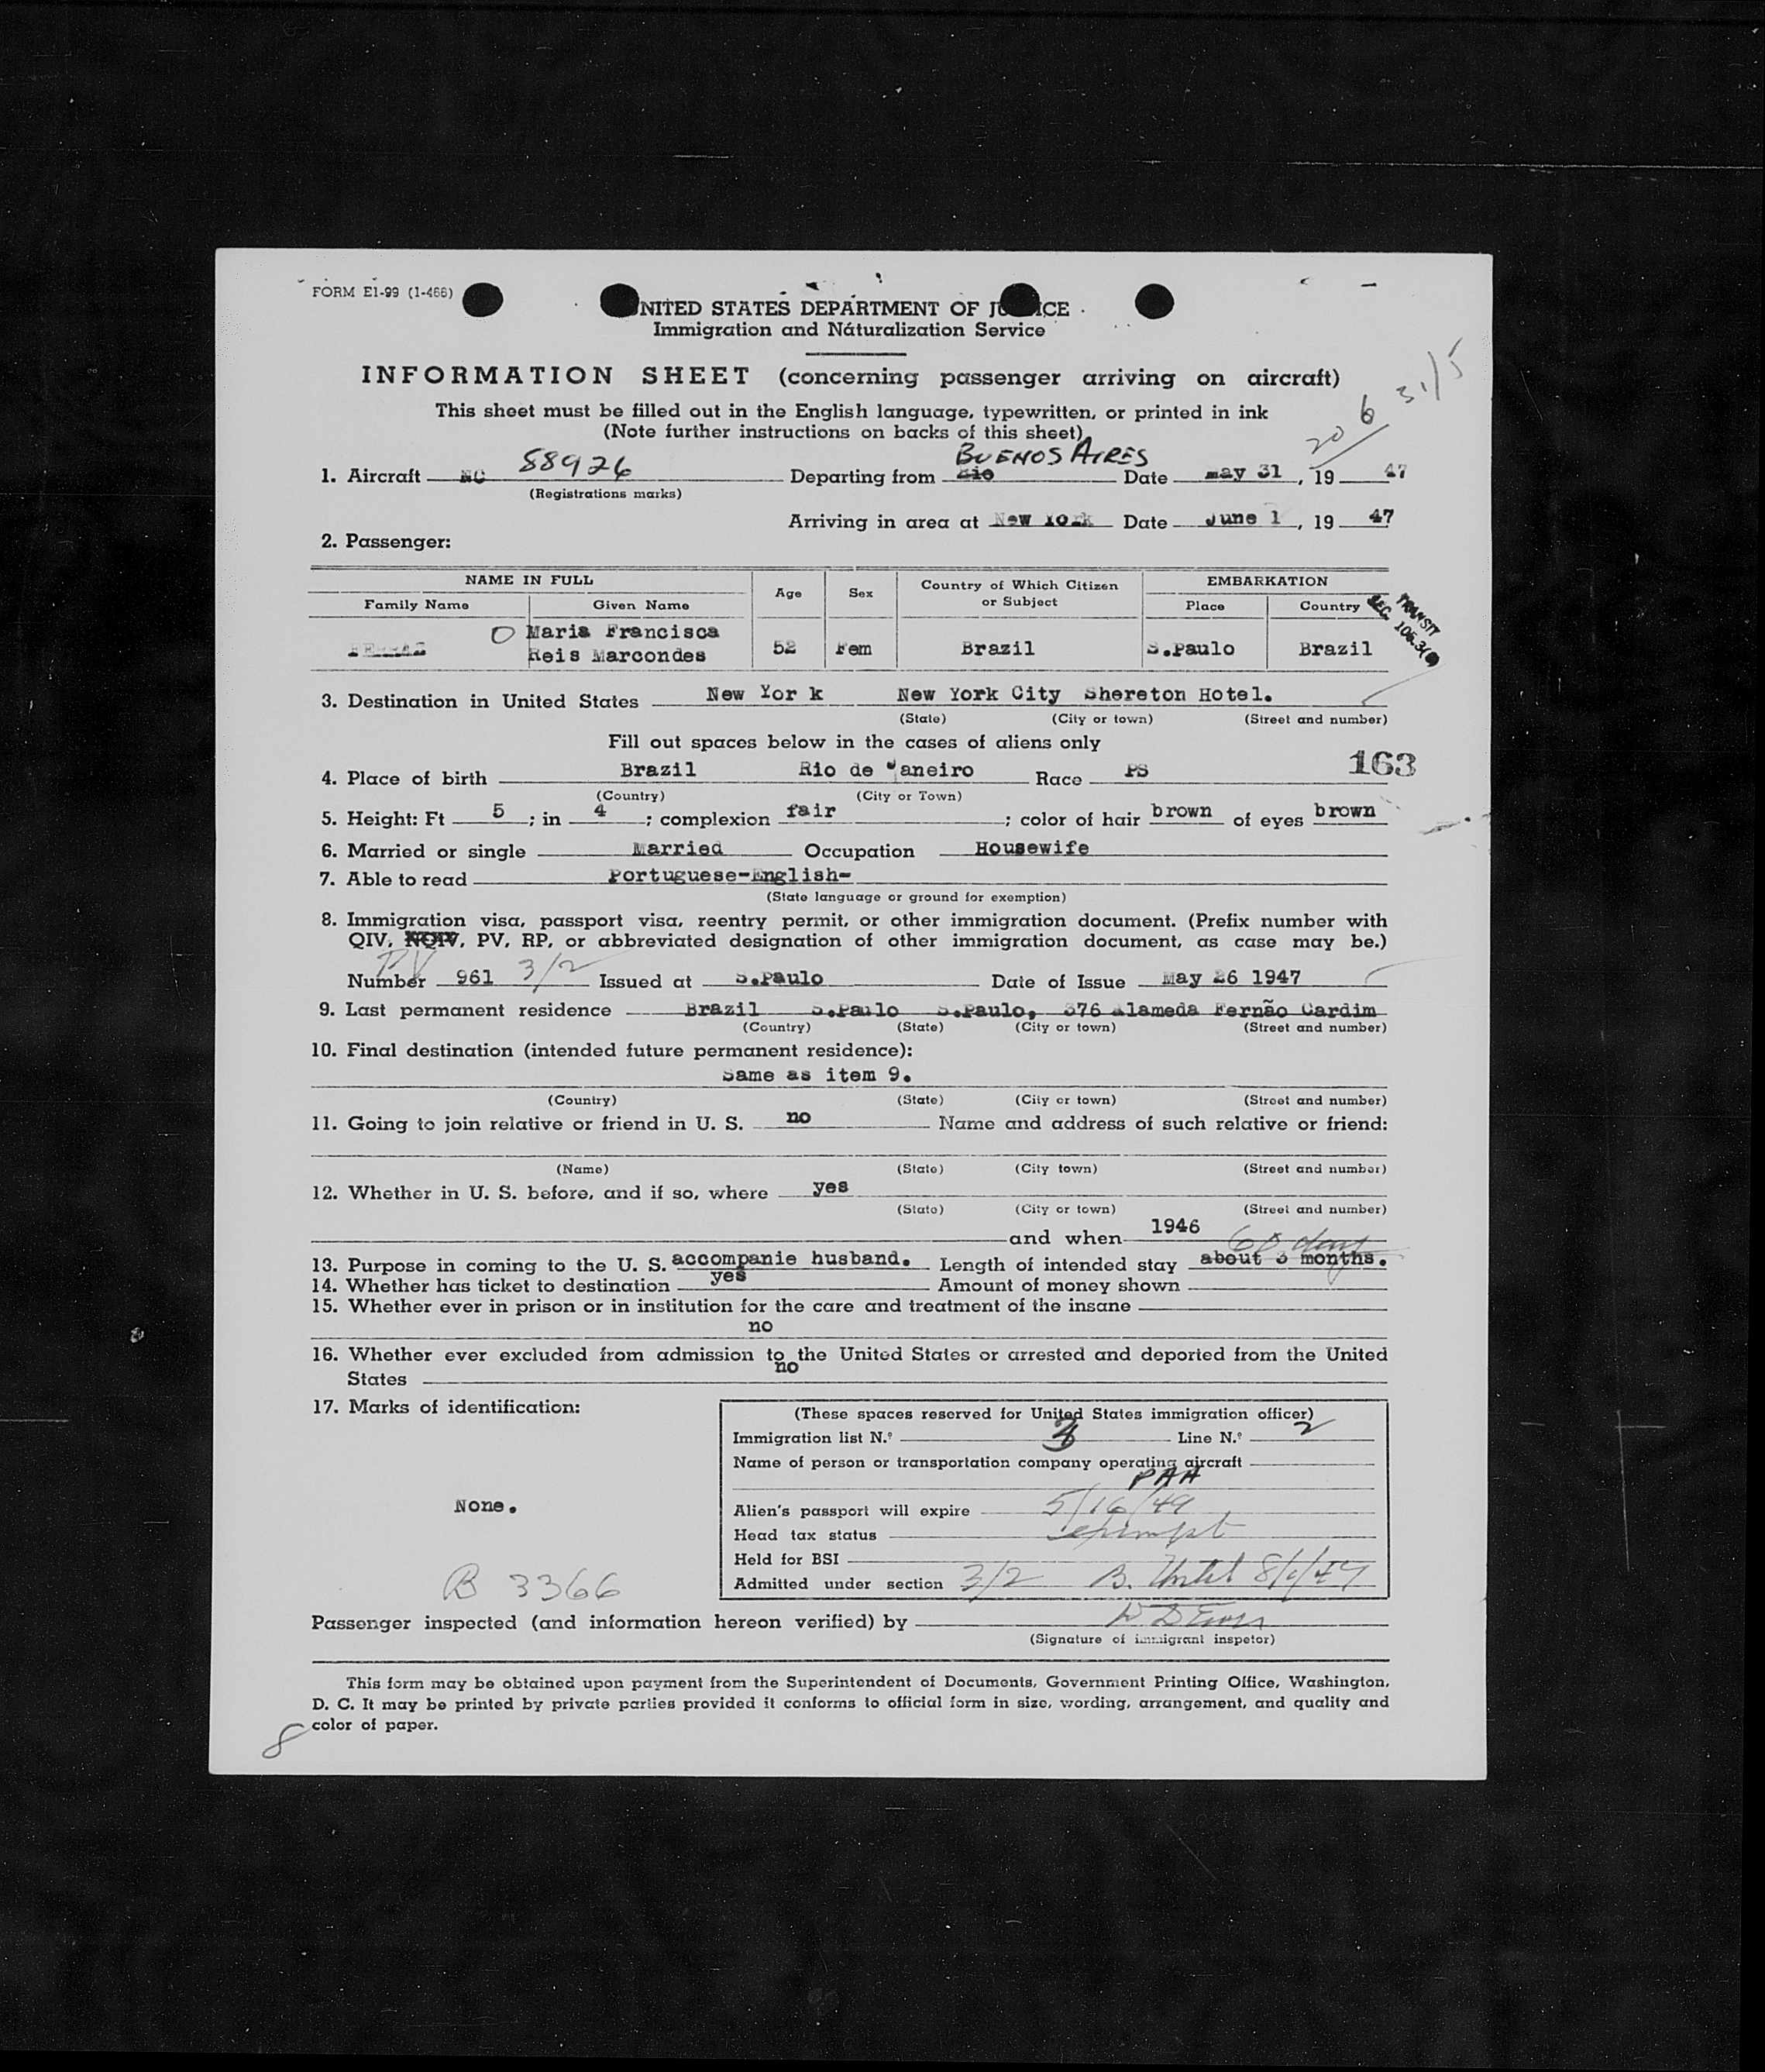 FORM E1-99 (1-466)
UNITED STATES DEPARTMENT OF JUSTICE
Immigration and Náturalization Service
INFORMATION SHEET (concerning passenger arriving on aircraft)
This sheet must be filled out in the English language, typewritten, or printed in ink
(Note further instructions on backs of this sheet)
20 6 31/5
1. Aircraft NC 88926 Departing from Rio BUENOS AIRES Date may 31, 19 47
(Registrations marks)
Arriving in area at New York Date June 1, 19 47
2. Passenger:
NAME IN FULL Age Sex Country of Which Citizen or Subject EMBARKATION
Family Name Given Name Place Country
TRANSIT
SEC. 106.3
FERRAZ Maria Francisca
Reis Marcondes 52 Fem Brazil S.Paulo Brazil
3. Destination in United States New Yor k New York City Shereton Hotel.
(State) (City or town) (Street and number)
Fill out spaces below in the cases of aliens only
163
4. Place of birth Brazil Rio de Janeiro Race PS
(Country) (City or Town)
5. Height: Ft 5 ; in 4 ; complexion fair ; color of hair brown of eyes brown
6. Married or single Married Occupation Housewife
7. Able to read Portuguese-English-
(State language or ground for exemption)
8. Immigration visa, passport visa, reentry permit, or other immigration document. (Prefix number with
QIV, NQIV, PV, RP, or abbreviated designation of other immigration document, as case may be.)
Number PV 961 3/2 Issued at S.Paulo Date of Issue May 26 1947
9. Last permanent residence Brazil S.Paulo S.Paulo, 376 Alameda Fernão Cardim
(Country) (State) (City or town) (Street and number)
10. Final destination (intended future permanent residence):
Same as item 9.
(Country) (State) (City or town) (Street and number)
11. Going to join relative or friend in U. S. no Name and address of such relative or friend:
(Name) (State) (City town) (Street and number)
12. Whether in U. S. before, and if so, where yes
(State) (City or town) (Street and number)
and when 1946
60 days
13. Purpose in coming to the U. S. accompanie husband. Length of intended stay about 3 months.
14. Whether has ticket to destination yes Amount of money shown
15. Whether ever in prison or in institution for the care and treatment of the insane
no
16. Whether ever excluded from admission to the United States or arrested and deported from the United
States no
17. Marks of identification:
None.
B 3366
(These spaces reserved for United States immigration officer)
Immigration list N.º 3 Line N.º 2
Name of person or transportation company operating aircraft
PAA
Alien's passport will expire 5/16/49
Head tax status exempt
Held for BSI
Admitted under section 3/2 B. Until 8/1/47
Passenger inspected (and information hereon verified) by
(Signature of immigrant inspetor)
This form may be obtained upon payment from the Superintendent of Documents, Government Printing Office, Washington,
D. C. It may be printed by private parties provided it conforms to official form in size, wording, arrangement, and quality and
color of paper.
8